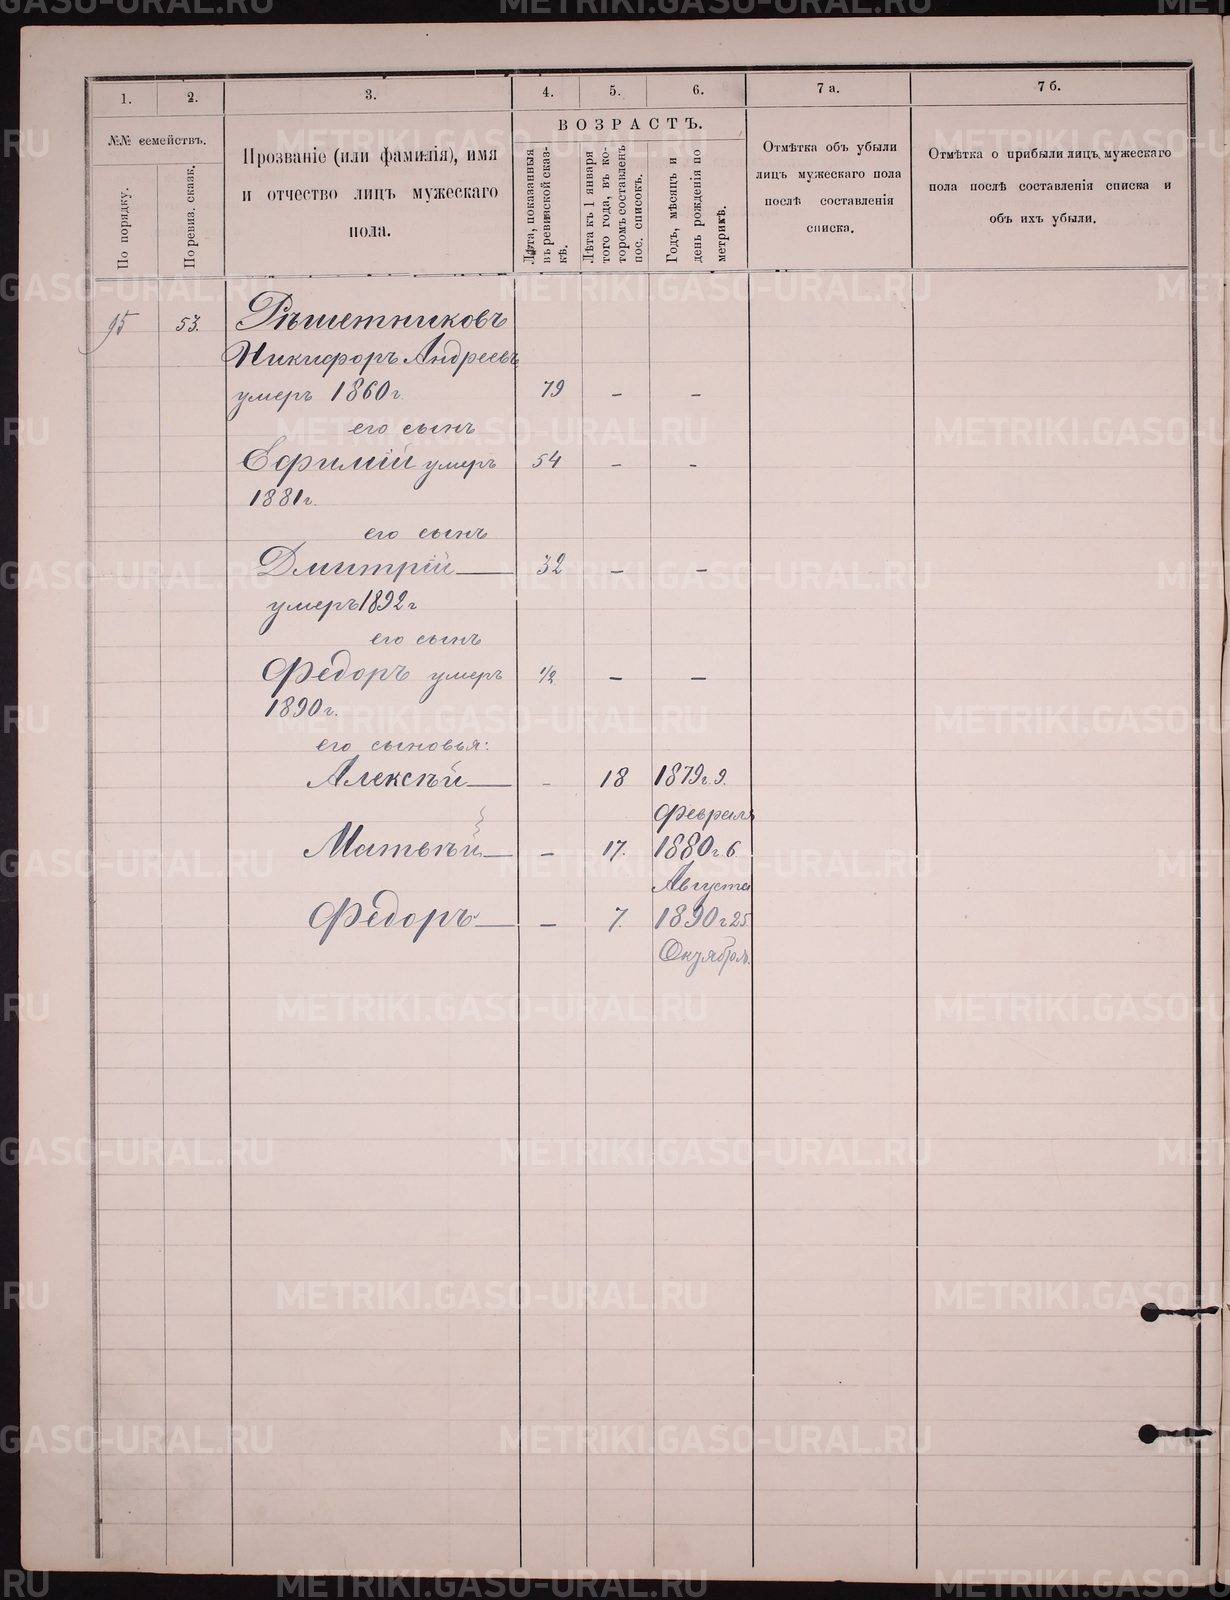 1.
2.
3.
4.
5.
6.
7 а.
7 б.
№№ семействъ.
По порядку.
По ревиз. сказк.
Прозваніе (или фамилія), имя
и отчество лицъ мужескаго
пола.
ВОЗРАСТЪ.
Лѣта, показанныя
въ ревизской сказ-
кѣ.
Лѣта къ 1 января
того года, въ ко-
торомъ составленъ
пос. списокъ.
Годъ, мѣсяцъ и
день рожденія по
метрикѣ.
Отмѣтка объ убыли
лицъ мужескаго пола
послѣ составленія
списка.
Отмѣтка о прибыли лицъ мужескаго
пола послѣ составленія списка и
объ ихъ убыли.
95 53. Рѣшетниковъ
Никифоръ Андреевъ
умеръ 1860 г. 79 – –
его сынъ
Ефимій умеръ 54 – –
1881 г.
его сынъ
Дмитрій — 32 – –
умеръ 1892 г
его сынъ
Федоръ умеръ 1/2 – –
1890 г.
его сыновья:
Алексѣй — - 18 1879 г. 9.
Февраля
Матвѣй — – 17. 1880 г. 6
Августа
Федоръ — – 7. 1890 г 25.
Октября.
METRIKI.GASO-URAL.RU